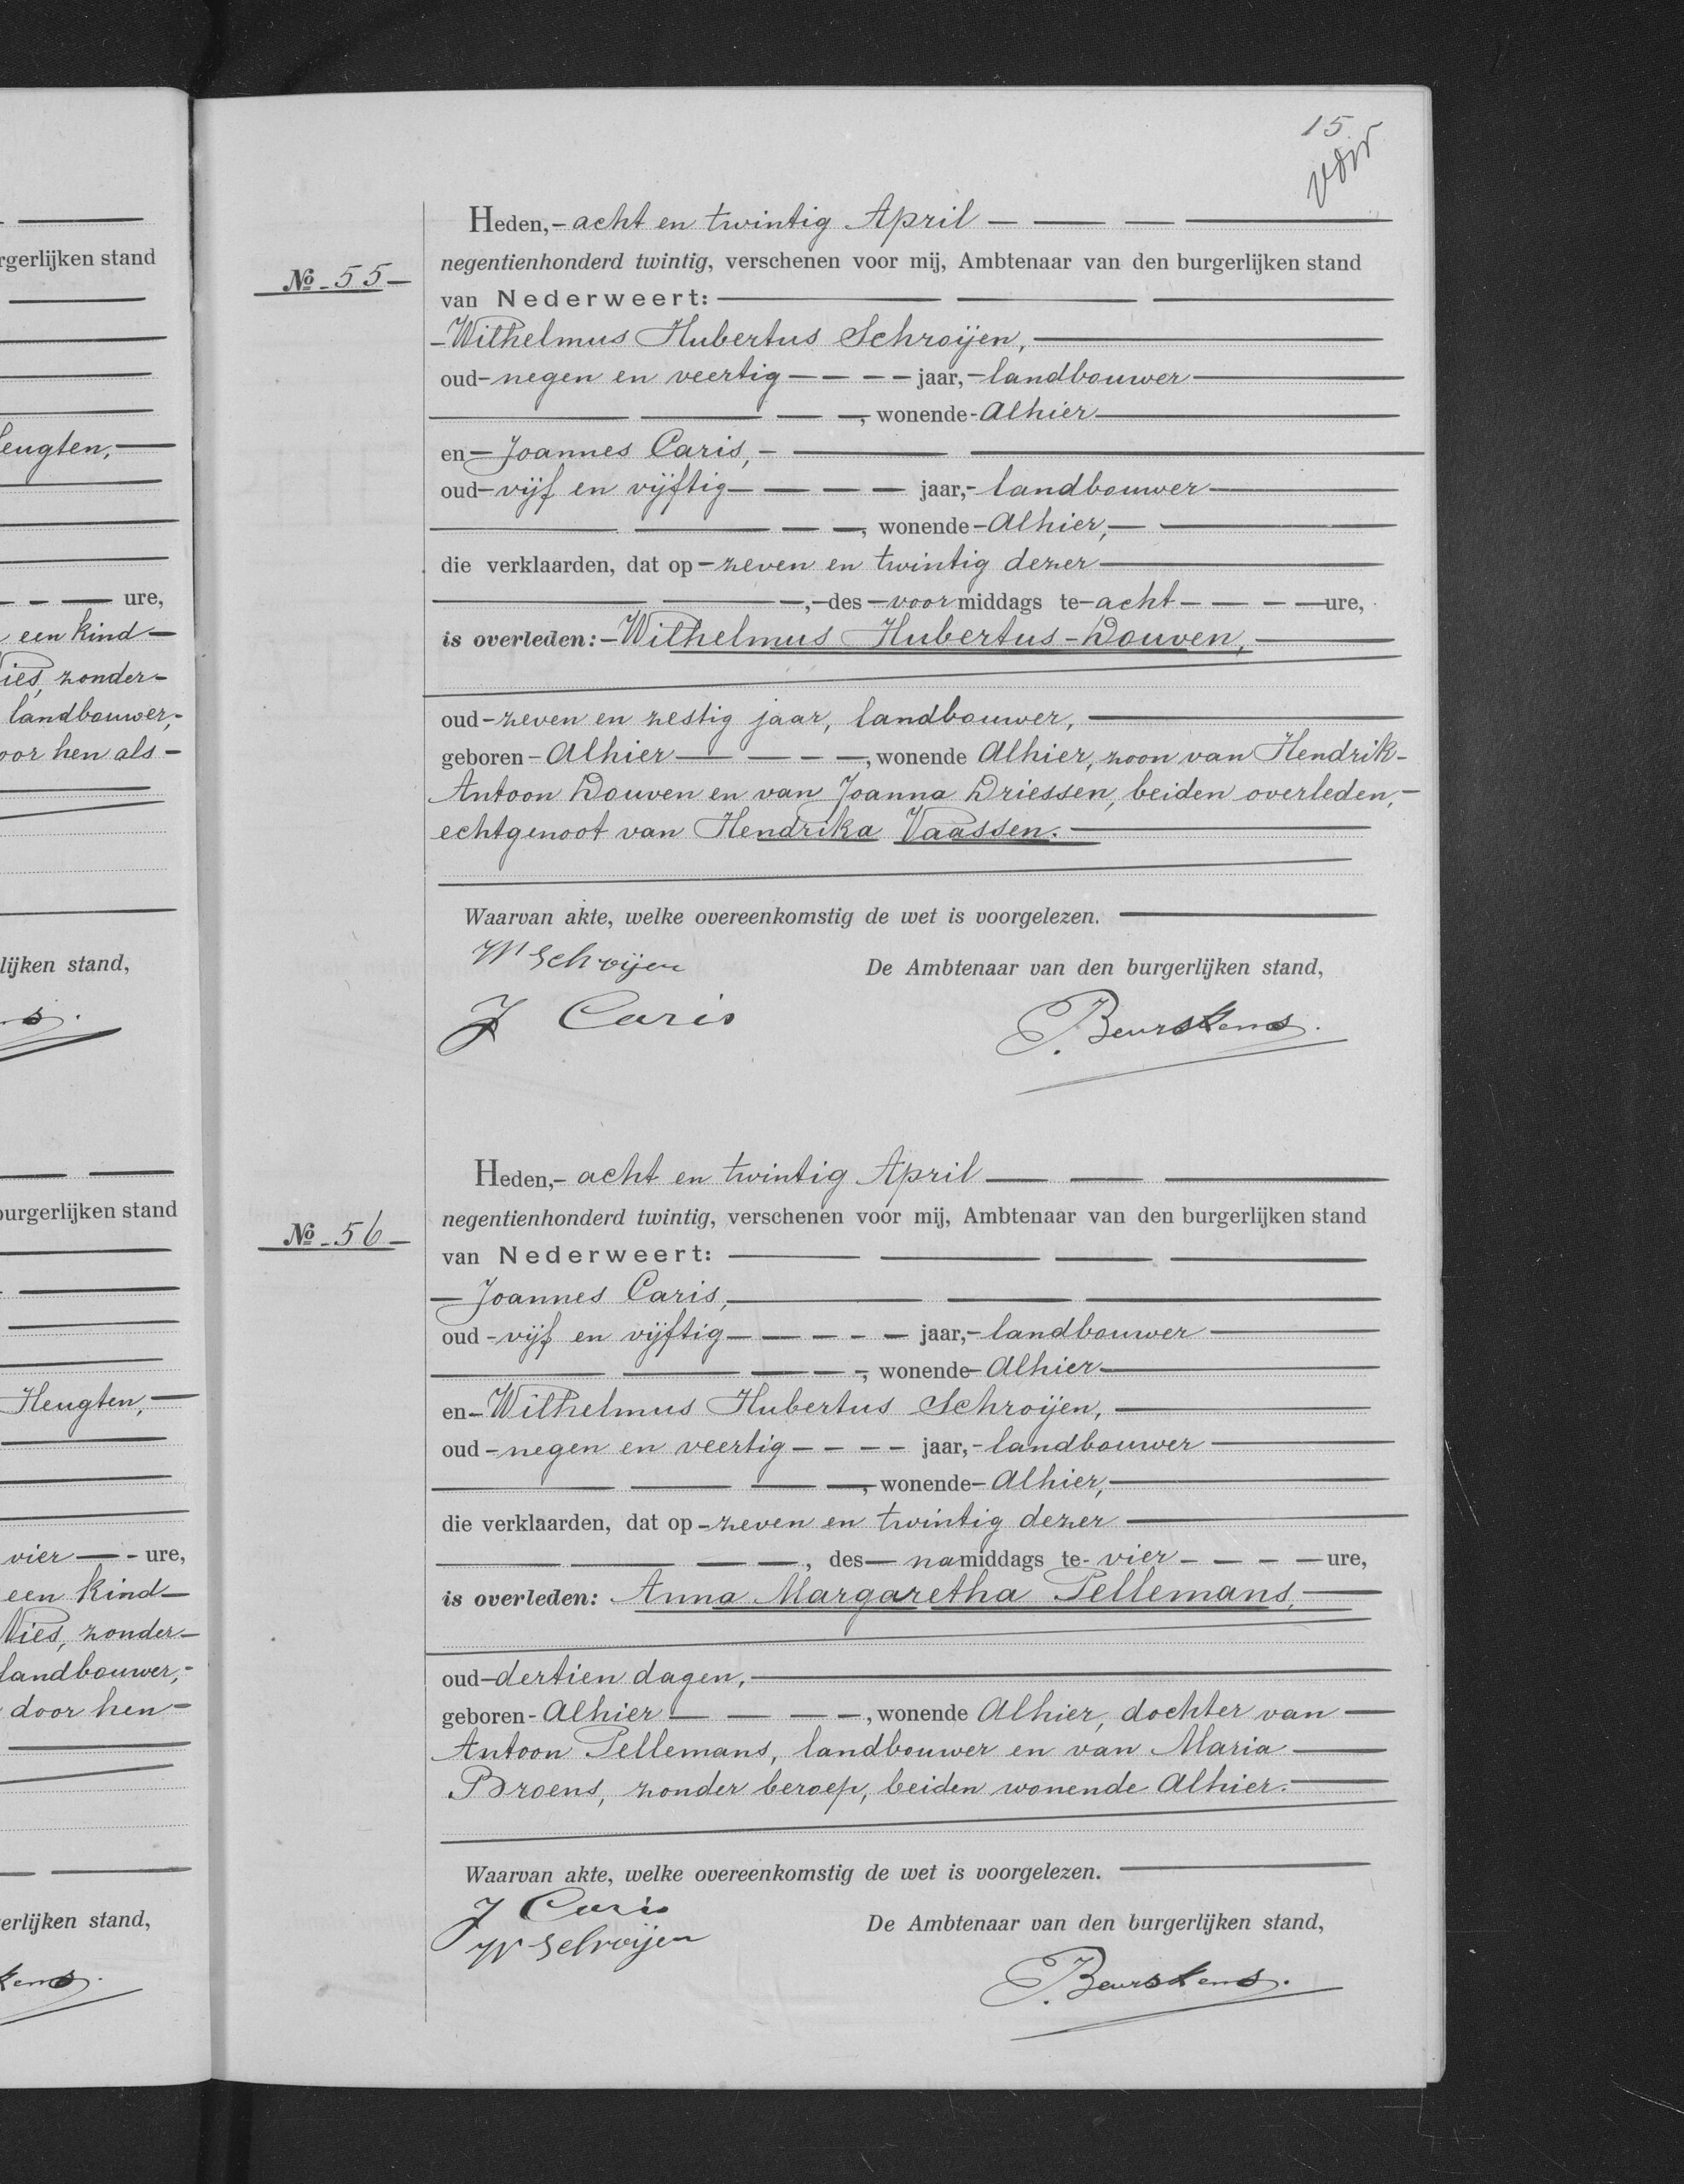 15
Heden, acht en twintig April
negentienhonderd twintig, verschenen voor mij, Ambtenaar van den burgerlijken stand
No 55
van Nederweert:
Wilhelmus Hubertus Schroijen,
oud negen en veertig jaar, landbouwer
, wonende Alhier
en Joannes Caris,
oud vijf en vijftig jaar, landbouwer
, wonende Alhier,
die verklaarden, dat op zeven en twintig dezer
, des voormiddags te acht ure,
is overleden: Wilhelmus Hubertus Douven,
oud zeven en zestig jaar, landbouwer,
geboren Alhier, wonende Alhier, zoon van Hendrik
Antoon Douven en van Joanna Driessen, beiden overleden,
echtgenoot van Hendrika Vaassen.
Waarvan akte, welke overeenkomstig de wet is voorgelezen.
W Schroijen
De Ambtenaar van den burgerlijken stand,
J Caris
P. Beurskens.
Heden, acht en twintig April
negentienhonderd twintig, verschenen voor mij, Ambtenaar van den burgerlijken stand
No 56
van Nederweert:
Joannes Caris,
oud vijf en vijftig jaar, landbouwer
, wonende Alhier
en Wilhelmus Hubertus Schroijen,
oud negen en veertig jaar, landbouwer
, wonende Alhier,
die verklaarden, dat op zeven en twintig dezer
, des namiddags te vier ure,
is overleden: Anna Margaretha Pellemans,
oud dertien dagen,
geboren Alhier, wonende Alhier, dochter van
Antoon Pellemans, landbouwer en van Maria
Broens, zonder beroep, beiden wonende Alhier.
Waarvan akte, welke overeenkomstig de wet is voorgelezen.
J Caris
W Schroijen
De Ambtenaar van den burgerlijken stand,
P. Beurskens.